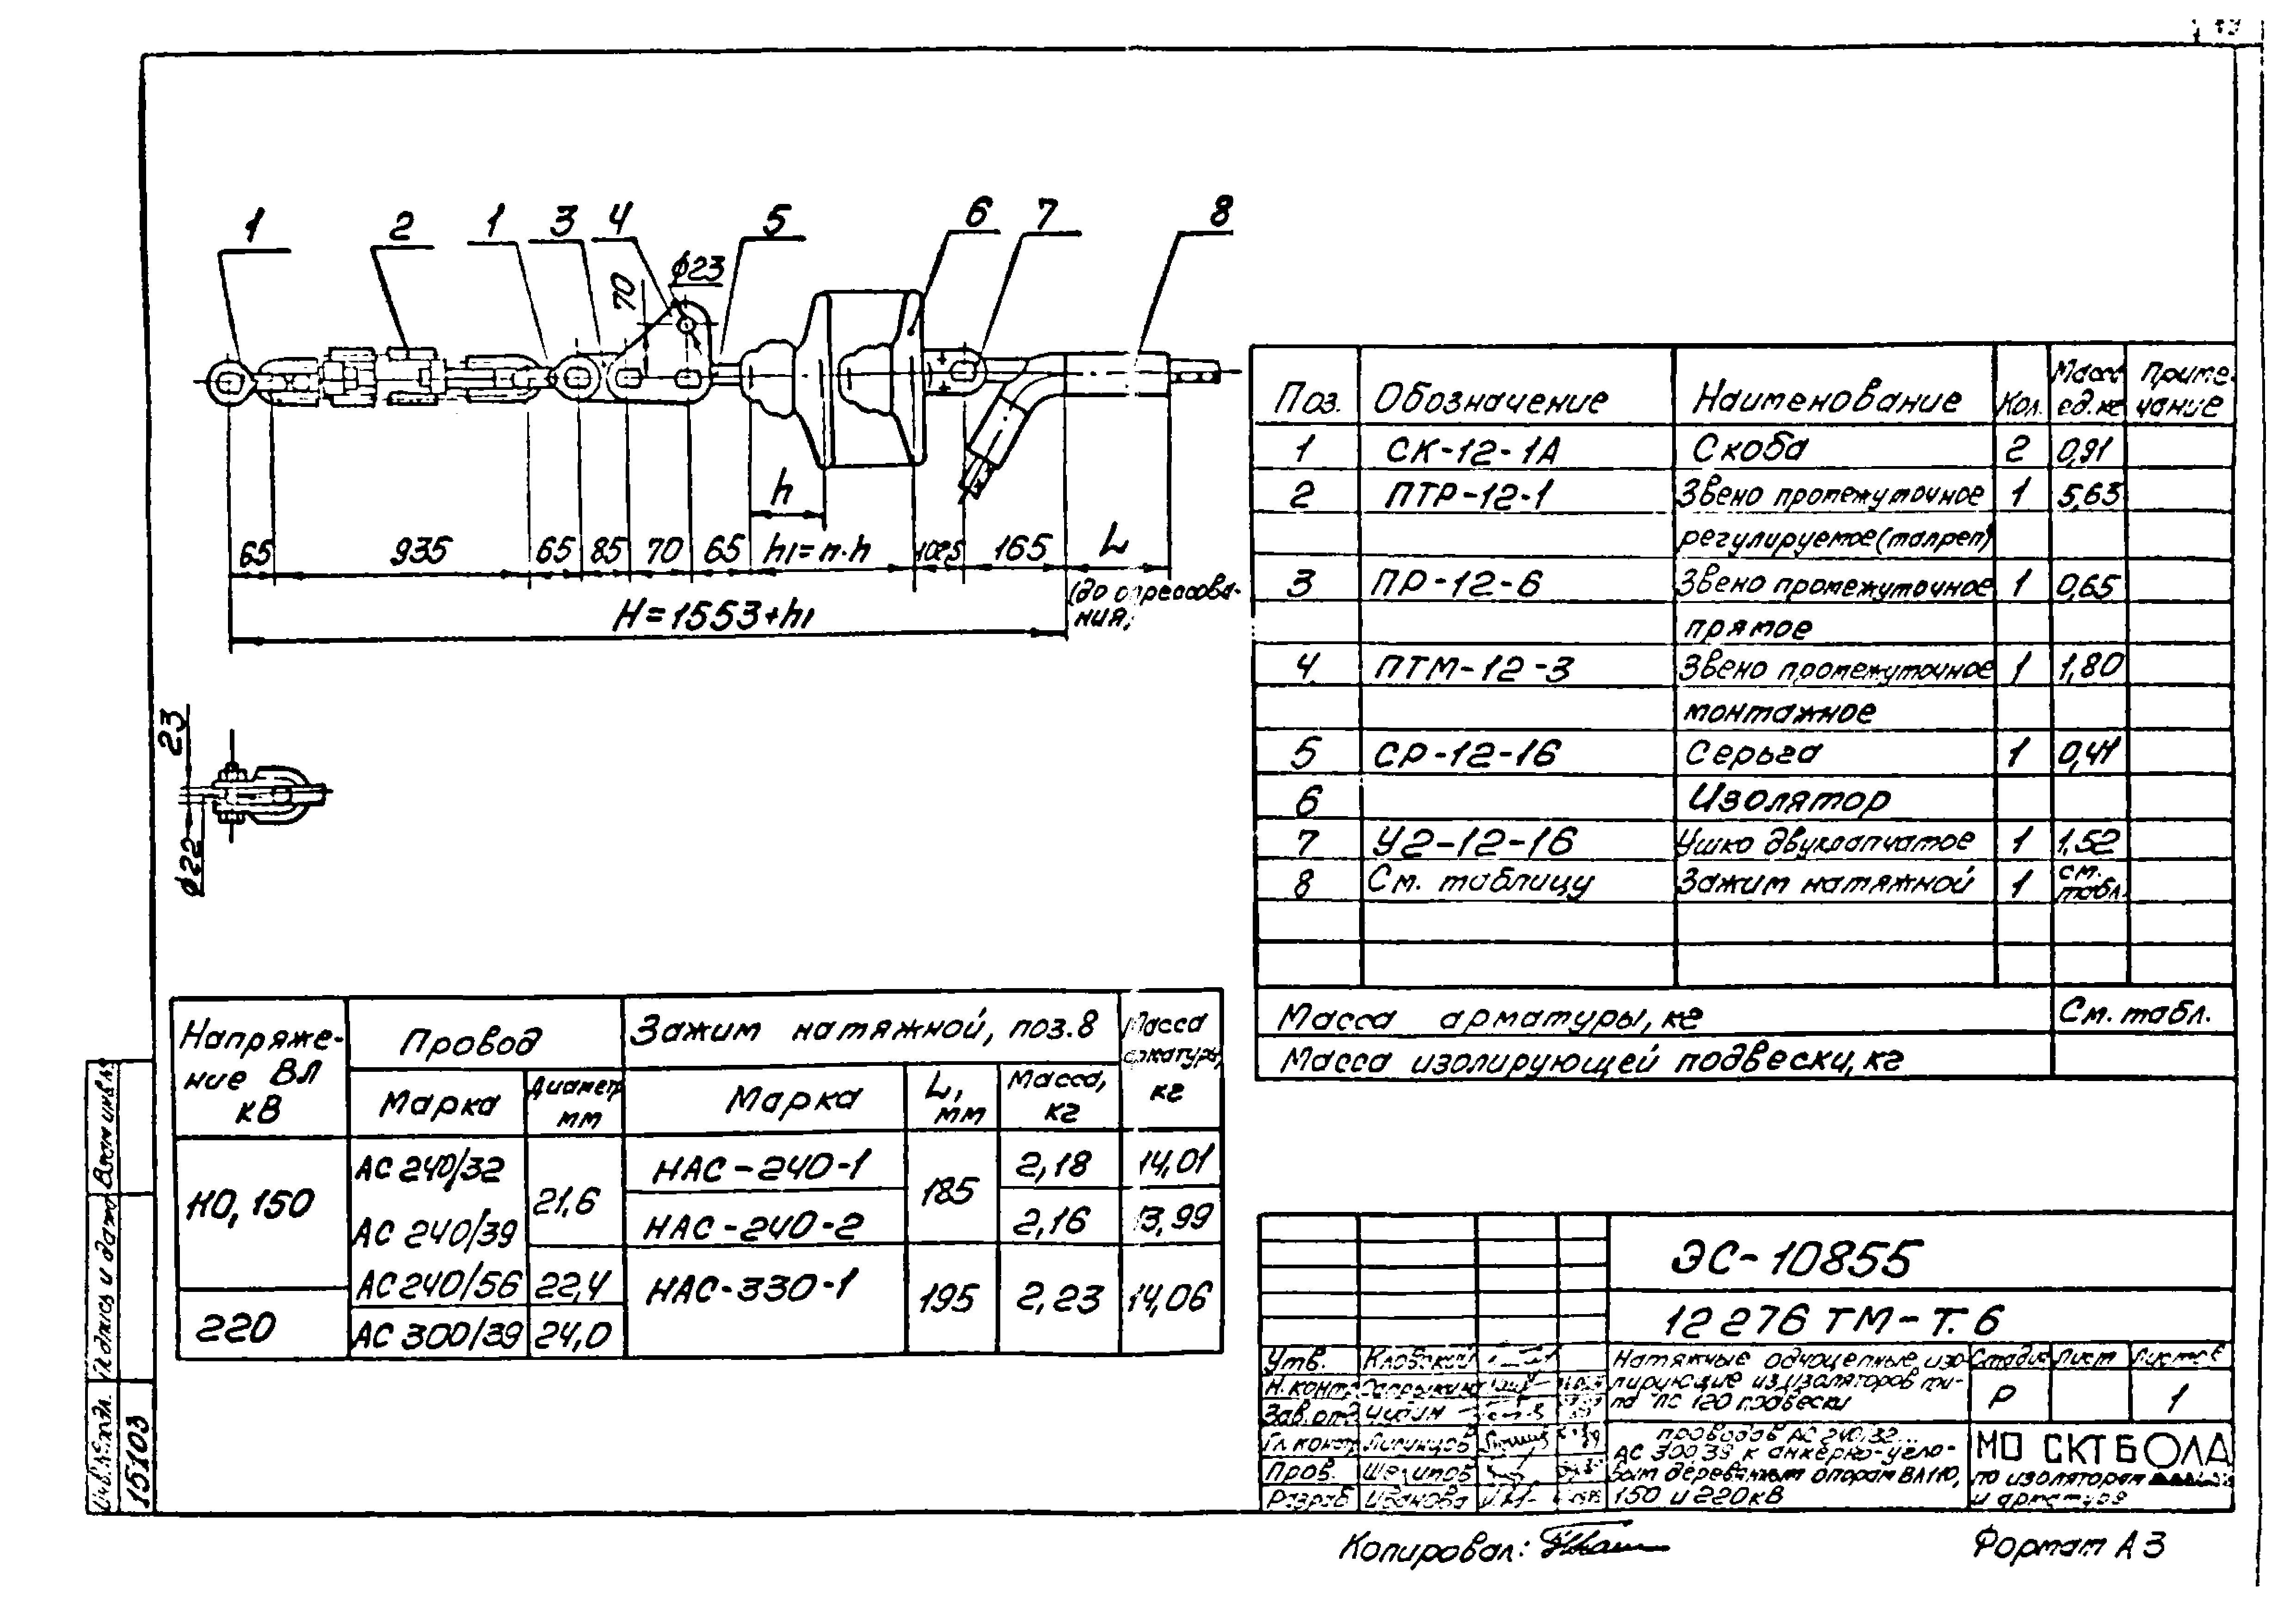 1 2 1 3 4 5 6 7 8
ϕ23
70
h
65 935 65 85 70 65 h1=n·h 102,5 165 L
(до опрессова-
ния)
H=1553+h1
23
ϕ22
Поз. Обозначение Наименование Кол. Масса ед. кг Приме-чание
1 СК-12-1А Скоба 2 0,91
2 ПТР-12-1 Звено промежуточное 1 5,63
регулируемое (талреп)
3 ПР-12-6 Звено промежуточное 1 0,65
прямое
4 ПТМ-12-3 Звено промежуточное 1 1,80
монтажное
5 СР-12-16 Серьга 1 0,41
6 Изолятор
7 У2-12-16 Ушко двухлапчатое 1 1,52
8 См. таблицу Зажим натяжной 1 см. табл.
Масса арматуры, кг См. табл.
Масса изолирующей подвески, кг
Напряже-ние ВЛ кВ Провод Зажим натяжной, поз. 8 Масса арматуры, кг
Марка Диаметр мм Марка L, мм Масса, кг
110, 150 АС 240/32 21,6 НАС-240-1 185 2,18 14,01
АС 240/39 НАС-240-2 2,16 13,99
АС 240/56 22,4 НАС-330-1 195 2,23 14,06
220 АС 300/39 24,0
Взам инв. №
Подпись и дата
Инв. № подл. 15103
ЭС-10855
12 276 ТМ-Т. 6
Утв. Кловский
Н. контр.
Зав. отд.
Гл. конст.
Пров.
Разраб Иванова
Натяжные одноцепные, изо-
лирующие из изоляторов ти-
па ПС 120 подвески
проводов АС 240/32...
АС 300/39 к анкерно-угло-
вым деревянным опорам ВЛ 110,
150 и 220 кВ
Стадия Лист Листов
Р 1
МО СКТБ ОЛД
по изоляторам
и арматуре
Копировал:
Формат А3